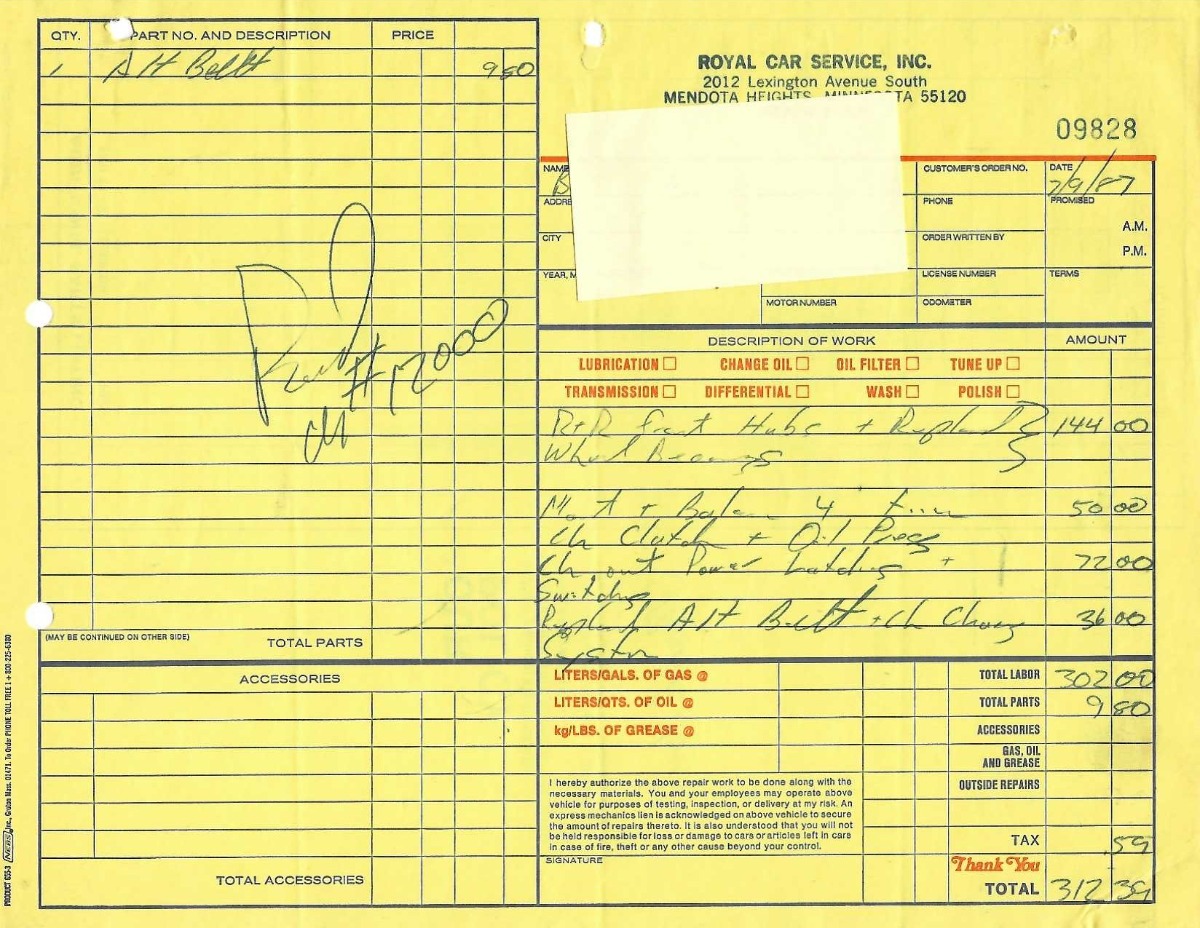 QTY. PART NO. AND DESCRIPTION PRICE
1 Alt Bellt 9 80
ROYAL CAR SERVICE, INC.
2012 Lexington Avenue South
MENDOTA HEIGHTS, MINNESOTA 55120
09828
NAME
CUSTOMER'S ORDER NO.
DATE 7/9/87
PHONE
PROMISED
A.M.
P.M.
CITY
ORDER WRITTEN BY
LICENSE NUMBER
TERMS
MOTOR NUMBER
ODOMETER
DESCRIPTION OF WORK AMOUNT
LUBRICATION CHANGE OIL OIL FILTER TUNE UP
TRANSMISSION DIFFERENTIAL WASH POLISH
R+R front Hubs + 144 00
Wheel
+ 4 50 00
Ch Clutch + Oil Press
Ch out Power + 72 00
Alt Bellt + Ch 36 00
System
#12000
(MAY BE CONTINUED ON OTHER SIDE) TOTAL PARTS
ACCESSORIES
TOTAL ACCESSORIES
LITERS/GALS. OF GAS @
LITERS/QTS. OF OIL @
kg/LBS. OF GREASE @
TOTAL LABOR 302 00
TOTAL PARTS 9 80
ACCESSORIES
GAS, OIL
AND GREASE
OUTSIDE REPAIRS
I hereby authorize the above repair work to be done along with the
necessary materials. You and your employees may operate above
vehicle for purposes of testing, inspection, or delivery at my risk. An
express mechanics lien is acknowledged on above vehicle to secure
the amount of repairs thereto. It is also understood that you will not
be held responsible for loss or damage to cars or articles left in cars
in case of fire, theft or any other cause beyond your control.
SIGNATURE
TAX .59
Thank You
TOTAL 312 39
PRODUCT 655-3 NEBS Inc., Groton Mass. 01471. To Order PHONE TOLL FREE 1 + 800-225-6380